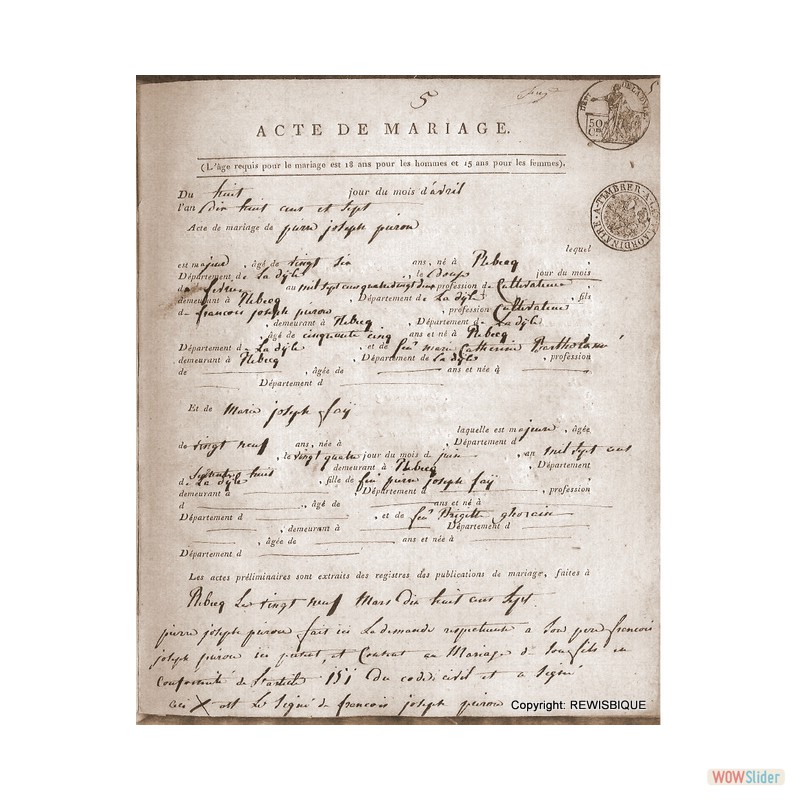 5
5
ACTE DE MARIAGE.
50
(L'âge requis pour le mariage est 18 ans pour les hommes et 15 ans pour les femmes).
A TIMBRER A L'EXTRAORDINAIRE
Du huit jour du mois d'avril
l'an dix huit cens et sept
Acte de mariage de pierre joseph piron
lequel
est majeur, âgé de vingt six ans, né à Rebecq
Département de La dyle, le Douze jour du mois
de fevrier au mil sept cens quatre vingt deux profession de Cultivateur
demeurant à Rebecq, Département de La dyle, fils
de francois joseph piron, profession Cultivateur
, demeurant à Rebecq, Département de La dyle
, âgé de cinquante cinq ans et né à Rebecq
Département de La dyle, et de feue marie Catherine
demeurant à Rebecq, Département de La dyle, profession
de , âgée de ans et née à
Département d
Et de Marie joseph faÿ
laquelle est majeure, âgée
de vingt neuf ans, née à , Département d
, le vingt quatre jour du mois de juin, an mil sept cens
Septante huit demeurant à Rebecq, Département
d. La dyle, fille de feu pierre joseph faÿ
demeurant à , Département d , profession
d , âgé de ans et né à
Département d , et de feue Brigitte
, demeurant à Département d
, âgée de ans et née à
Département d
Les actes préliminaires sont extraits des registres des publications de mariage, faites à
Rebecq Le vingt neuf Mars dix huit cens sept.
pierre joseph piron fait ici La demande respectueuse a Son pere francois
joseph piron ici present, et Consent au Mariage de Son fils en
Conformité de L'article 151 du code civil et a Signé
ceci X est Le Signé de francois joseph piron
Copyright: REWISBIQUE
WOWSlider